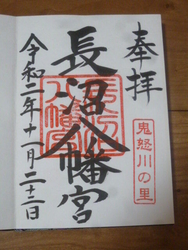 奉拝
鬼怒川の里
長沼八幡宮
令和二年十一月二十三日